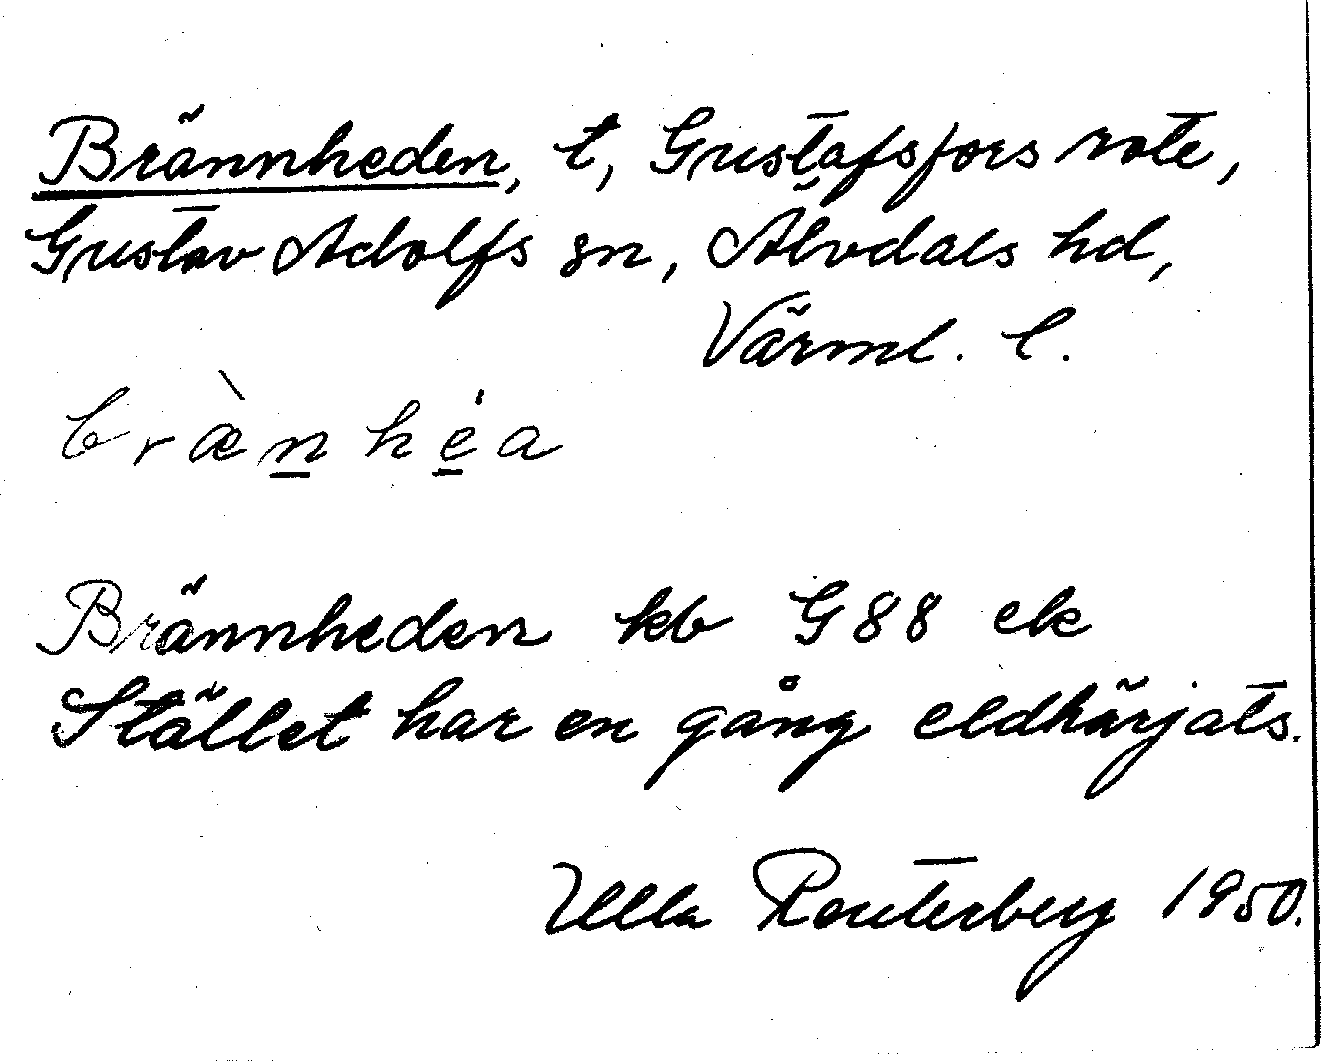 Brännheden, t, Gustafsfors rote,
Gustav Adolfs sn, Älvdals hd,
Värml. l.
bræ̀n̲hé̲a
Brännheden kb G88 ek
Stället har en gång eldhärjats.
Ulla Reuterberg 1950.